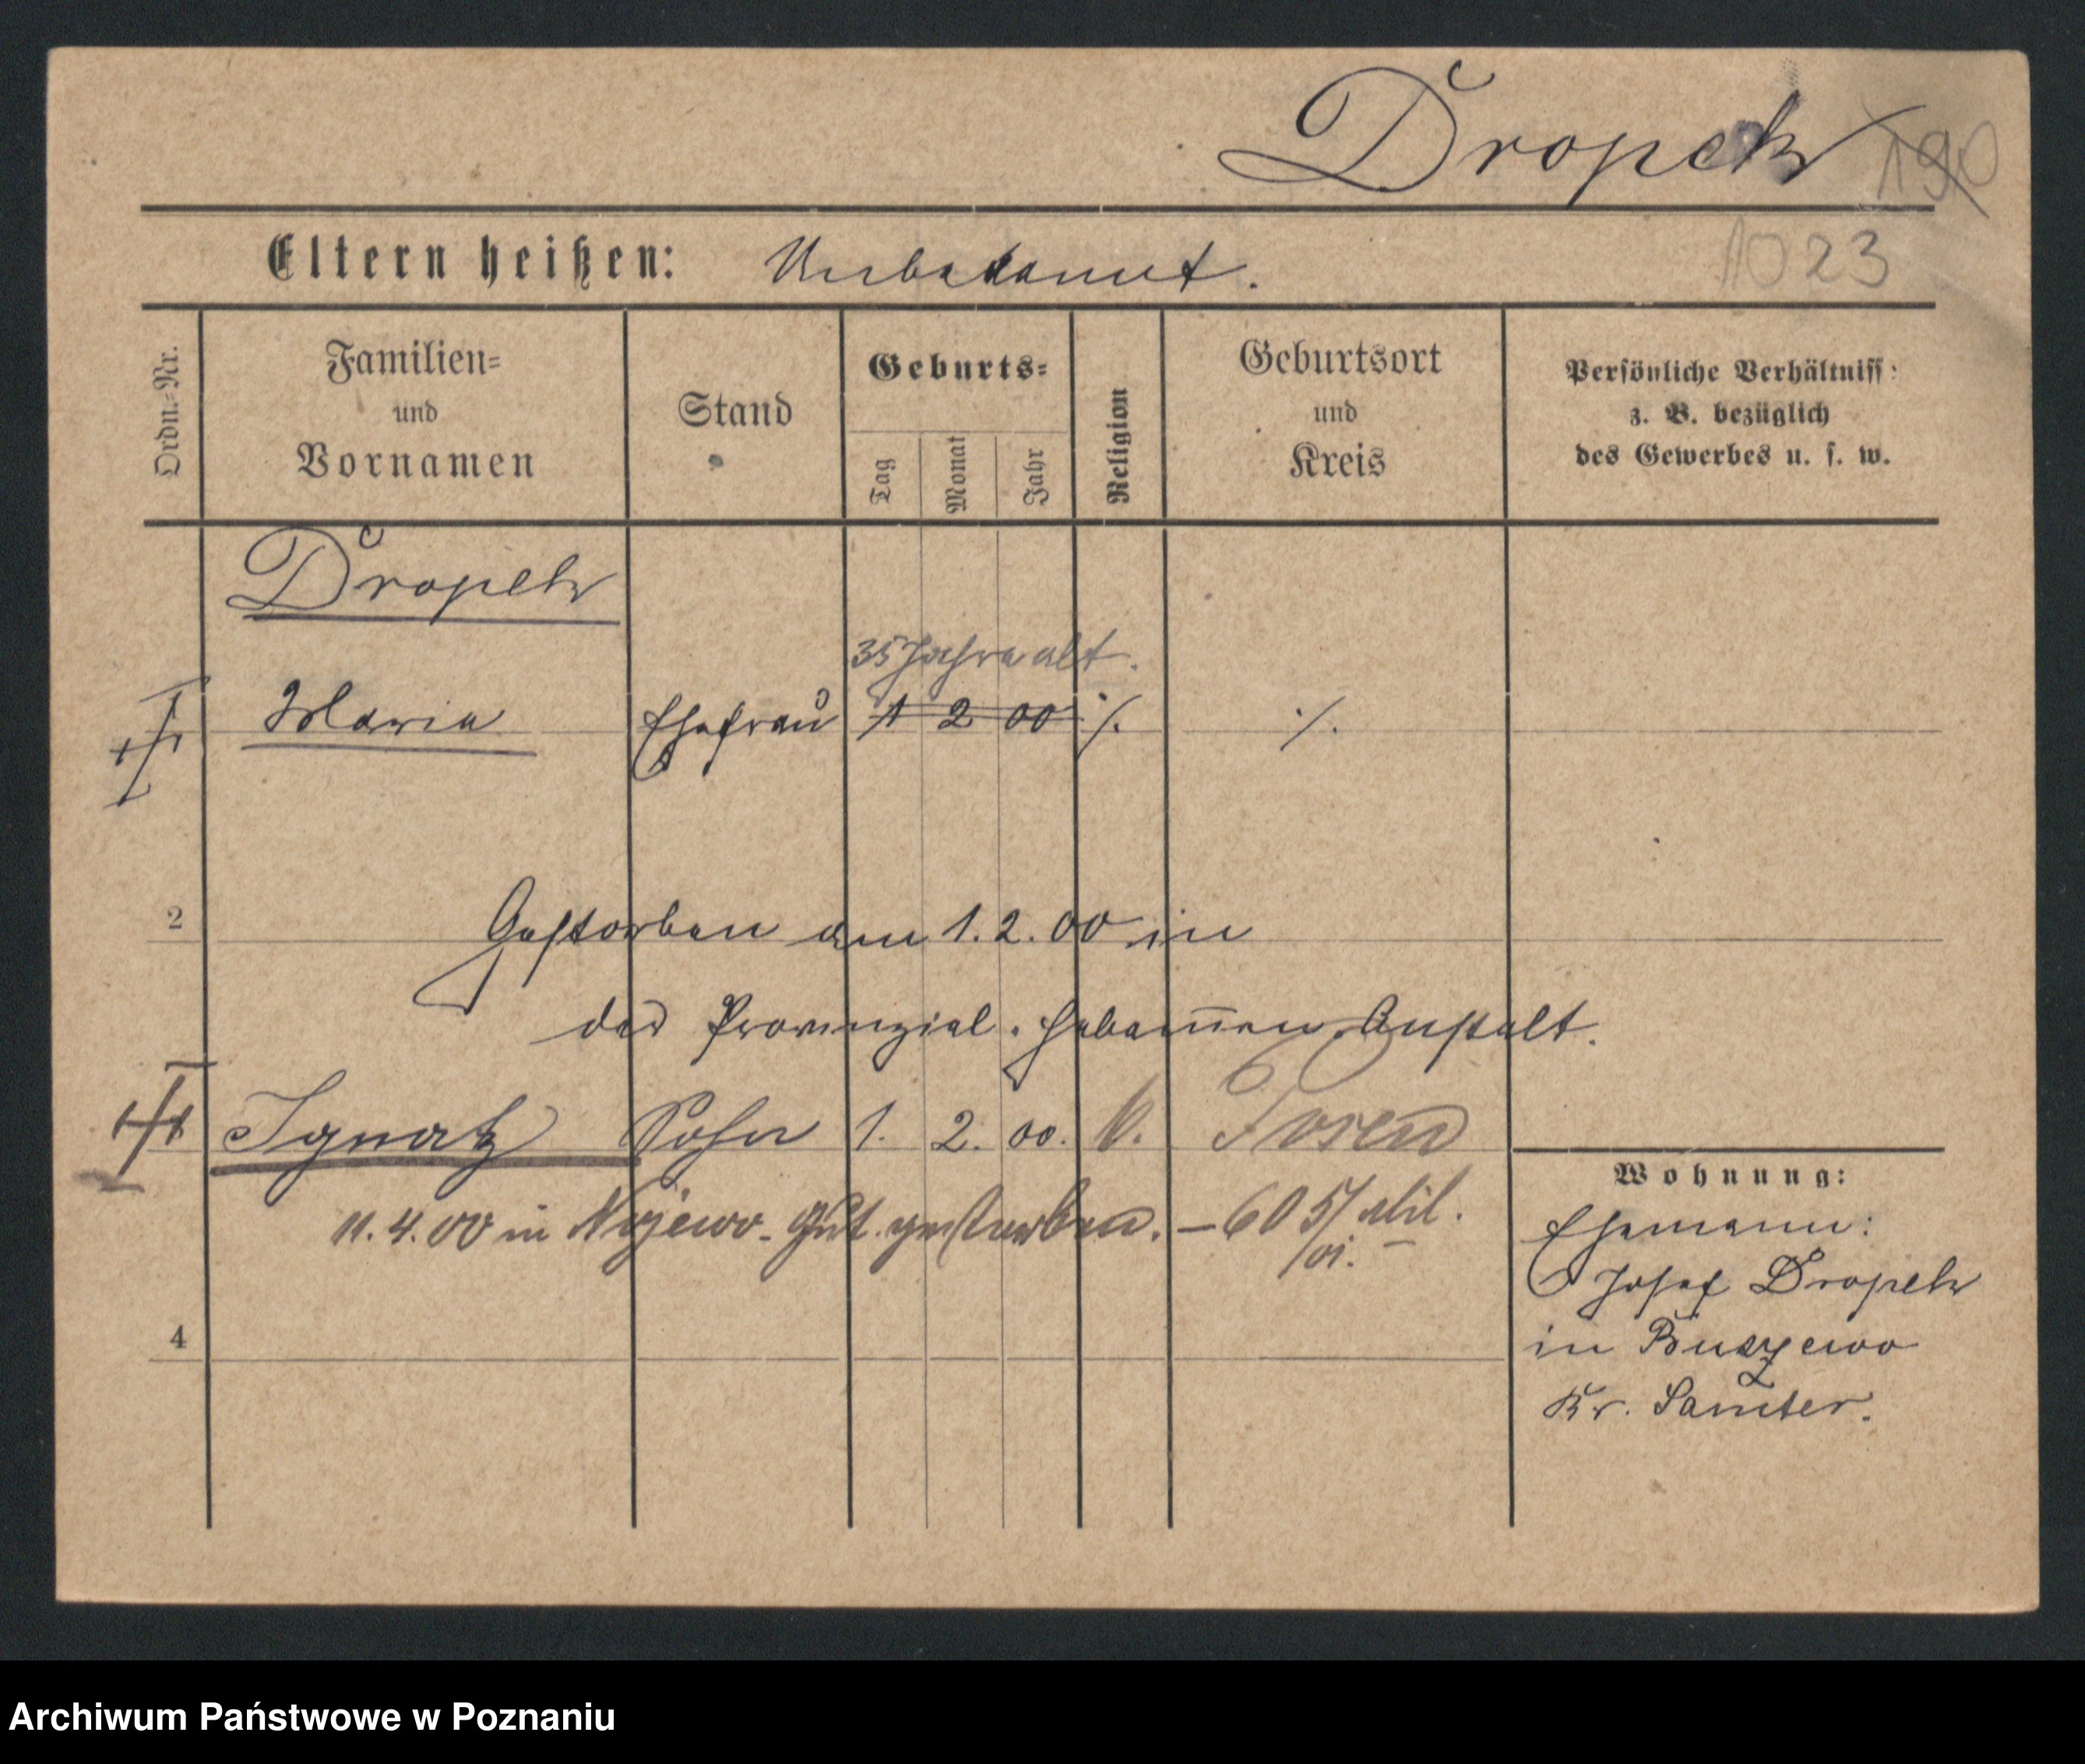 Dropek
190
1023
Eltern heißen: Unbekannt.
Ordn.-Nr.
Familien-
und
Vornamen
Stand
Geburts-
Tag
Monat
Jahr
Religion
Geburtsort
und
Kreis
Persönliche Verhältniss:
z. B. bezüglich
des Gewerbes u. s. w.
Dropek
35 Jahre alt.
Maria Ehefrau 1 2 00 ./. ./.
2
Gestorben am 1.2.00 in
der Provinzial-Hebam̅en-Anstalt.
Ignatz Sohn 1. 2. 00. k. Posen
11.4.00 in Nojewo-Gut gestorben. – 605/ Mil.
/VI.
Wohnung:
Ehemann:
Josef Dropek
4
in Buszewo
Kr. Samter.
Archiwum Państwowe w Poznaniu